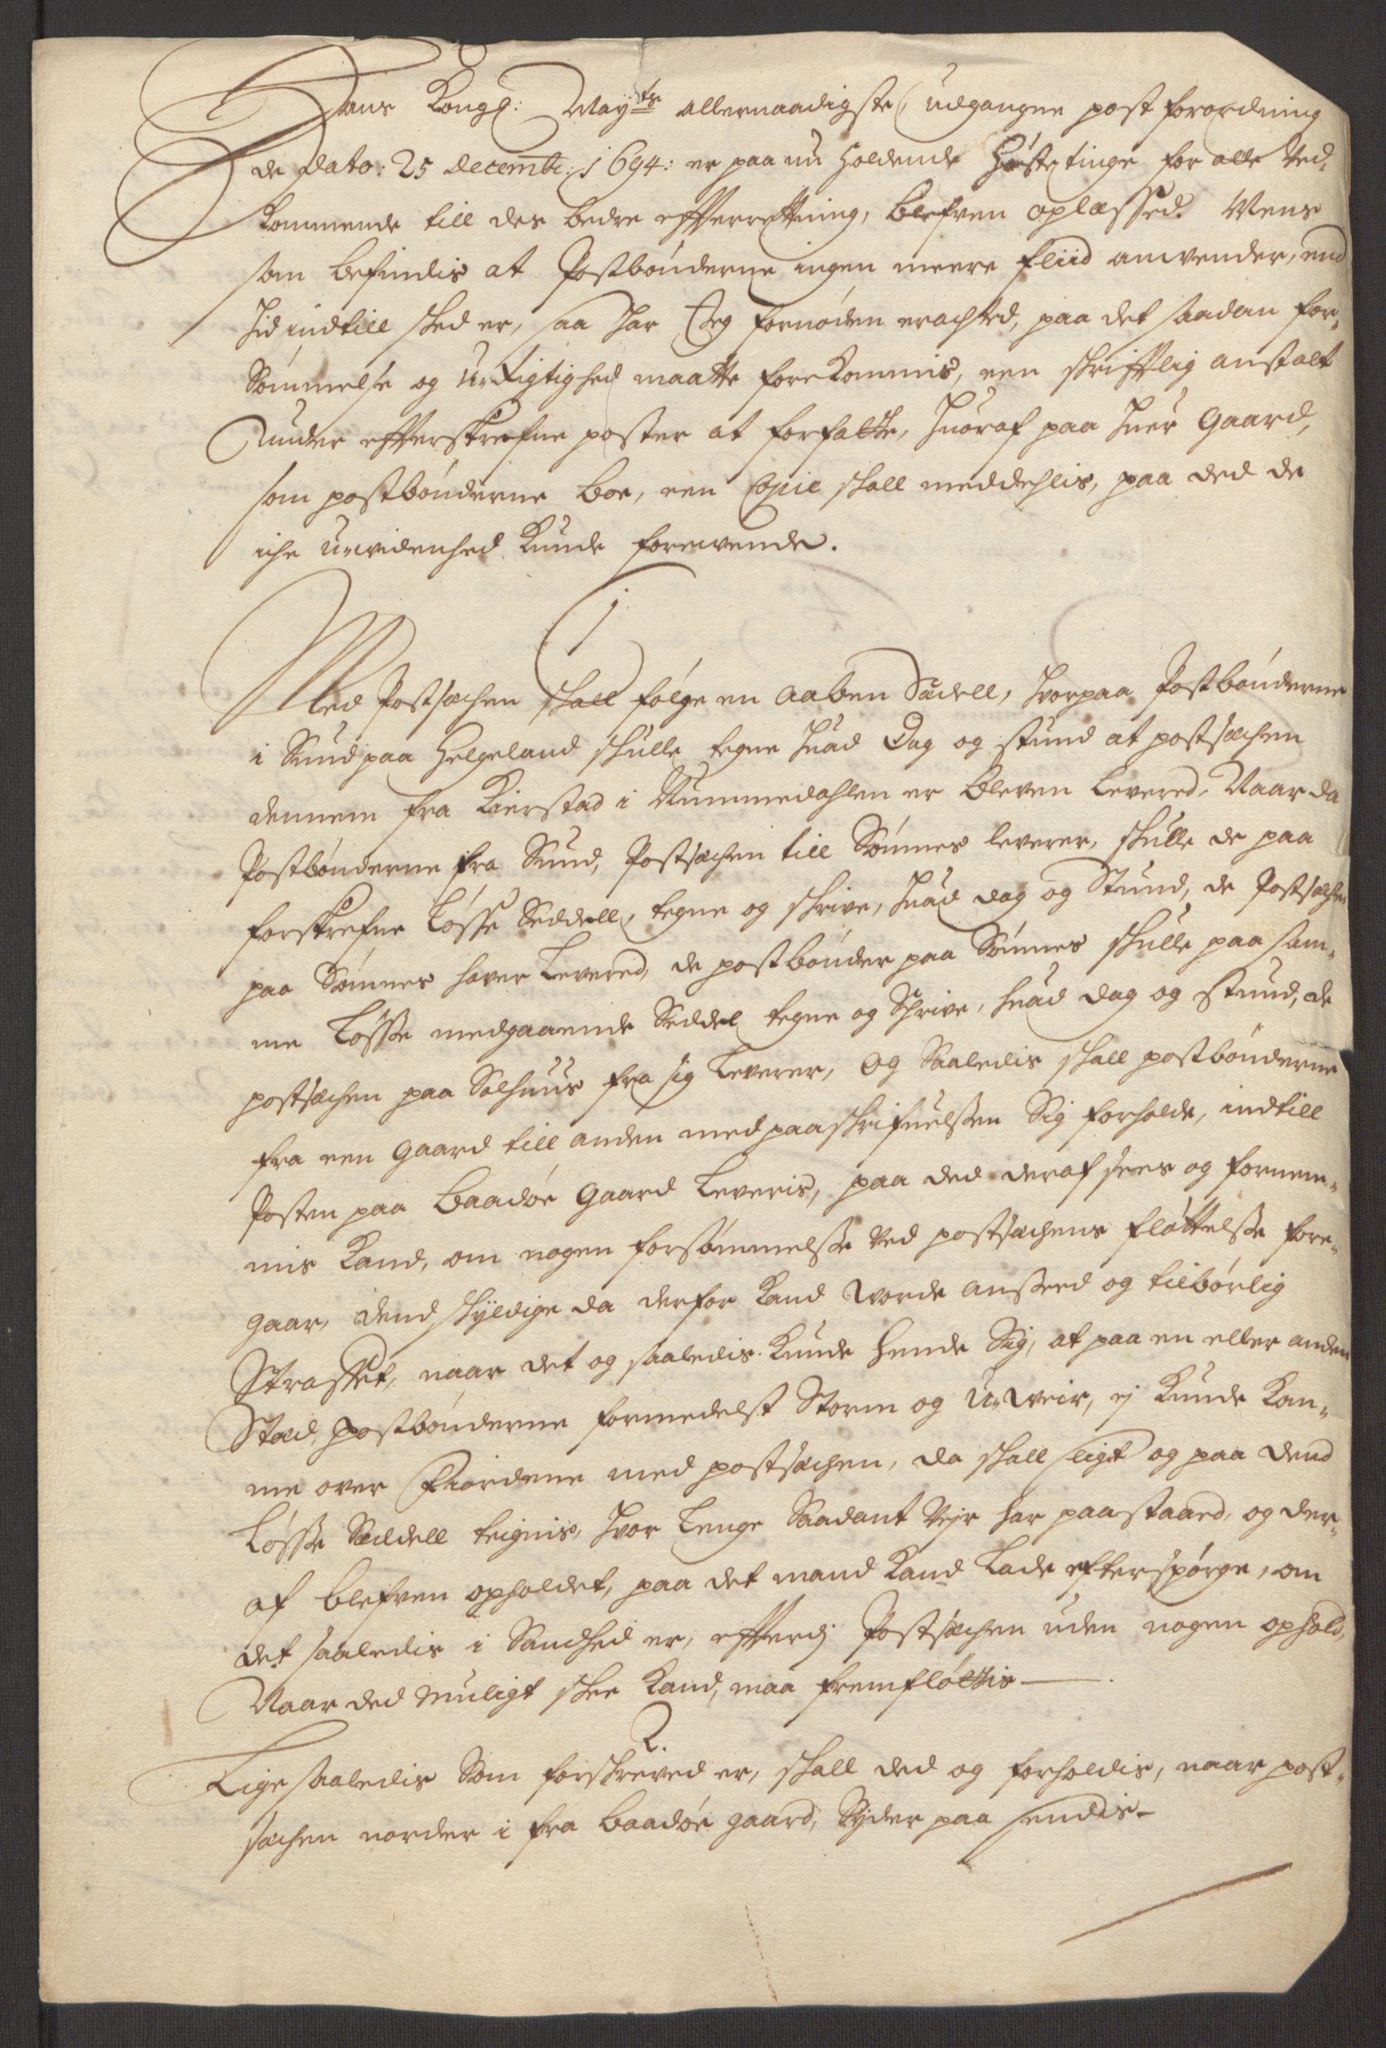 Hans Kongl: Mayts allernaadigste udgangne post forordning
de Dato: 25 decembr: 1694: er paa nu holdende Høste tinge for alle Ved-
kommende till des bedre efterrettning, blefven oplæssed. Mens
som befindis at Postbønderne ingen meere fliid anvender, end
hid indtill sked er, saa har Jeg fornøden erachted, paa det saadan for-
sømmelse og urigtighed maatte forekommis, een skrifftlig anstalt
Under effterskrefne poster at forfatte, huoraf paa huer Gaard,
som postbønderne boe, een Copie skall meddehlis, paa ded de
iche uvidenhed kunde forevende.
1
Med Postsechen skall følge en aaben Sedell, hvorpaa Postbønderne
i Sund paa Helgeland skulle tegne huad Dag og stund at postsechen
dennem fra Kierstad i Nummedahlen er bleven levered, Naar da
Postbønderne fra Sund, Postsechen till Sømnes leverer, skulle de paa
forskrefne løsse Seddell, tegne og skrive, huad dag og Stund, de Postsechen
paa Sømnes haver levered, de postbønder paa Sømnes skulle paa sam-
me løsse medgaaende Seddel tegne og Schrive, huad dag og stund, de
postsechen paa Solhuus fra sig leverer, og Saaledis skall postbønderne
fra een gaard till anden med paaskrifuelssen Sig forholde, indtill
Posten paa Baadøe Gaard leveris, paa ded deraf sees og fornem-
mis kand, om nogen forsømmelsse ved postsechens fløttelsse fore-
gaar, dend skyldige da derfor kand vorde ansseed og tilbørlig
Straffet, naar det og saaledis kunde hende Sig, at paa en eller anden
Stæd, postbønderne formedelst Storm og Uveir, ej kunde kom-
me over Fiordene med postsechen, da skall sligt og paa dend
løsse Seddell teignis, hvor lenge Saadant Vejr har paastaaed, og der-
af blefven opholdet, paa det mand kand lade efterspørge, om
det saaledis i Sandhed er, effterdj Postsechen uden nogen ophold,
Naar ded muligt skee kand, maa fremfløttis
2.
Lige saaledis Som forskreved er, skall ded og forholdis, naar post-
sechen norden i fra Baadøe gaard, Syder paa sendis